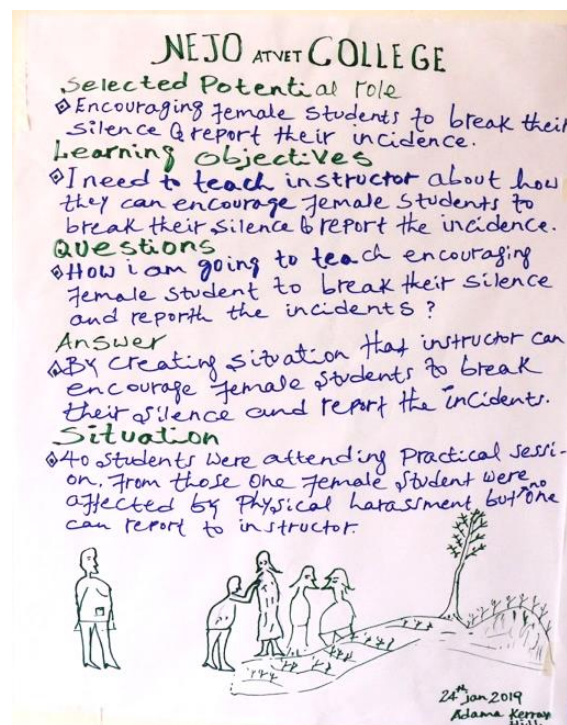 NEJO ATVET COLLEGE
Selected Potential role
Encouraging female students to break their
silence & report their incidence.
Learning Objectives
I need to teach instructor about how
they can encourage female students to
break their silence & report the incidence.
Questions
How i am going to teach encouraging
female student to break their silence
and reporth the incidents?
Answer
By creating situation that instructor can
encourage female students to break
their silence and report the incidents.
Situation
40 students were attending Practical sessi-
on. From those one female student were
affected by Physical harassment but no one
can report to instructor.
24th Jan 2019
Adama